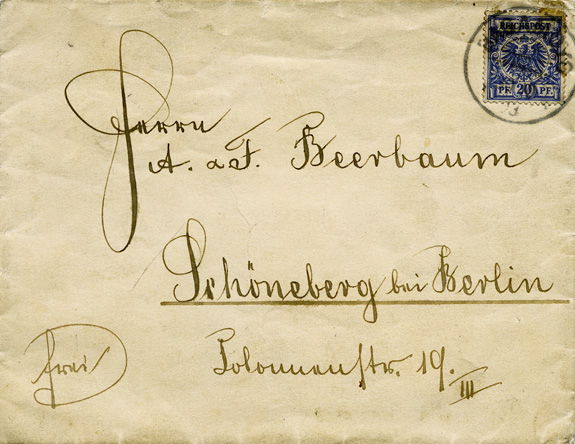 REICHSPOST
PF 20 PF
Herrn
A. a.F. Beerbaum
Schöneberg bei Berlin
Colonnenstr. 19. III
frei